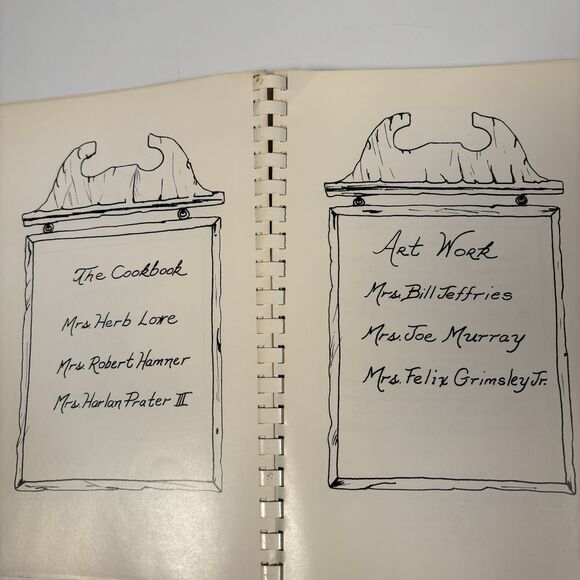 The Cookbook
Mrs. Herb Lowe
Mrs. Robert Hamner
Mrs. Harlan Prater III
Art Work
Mrs. Bill Jeffries
Mrs. Joe Murray
Mrs. Felix Grimsley Jr.